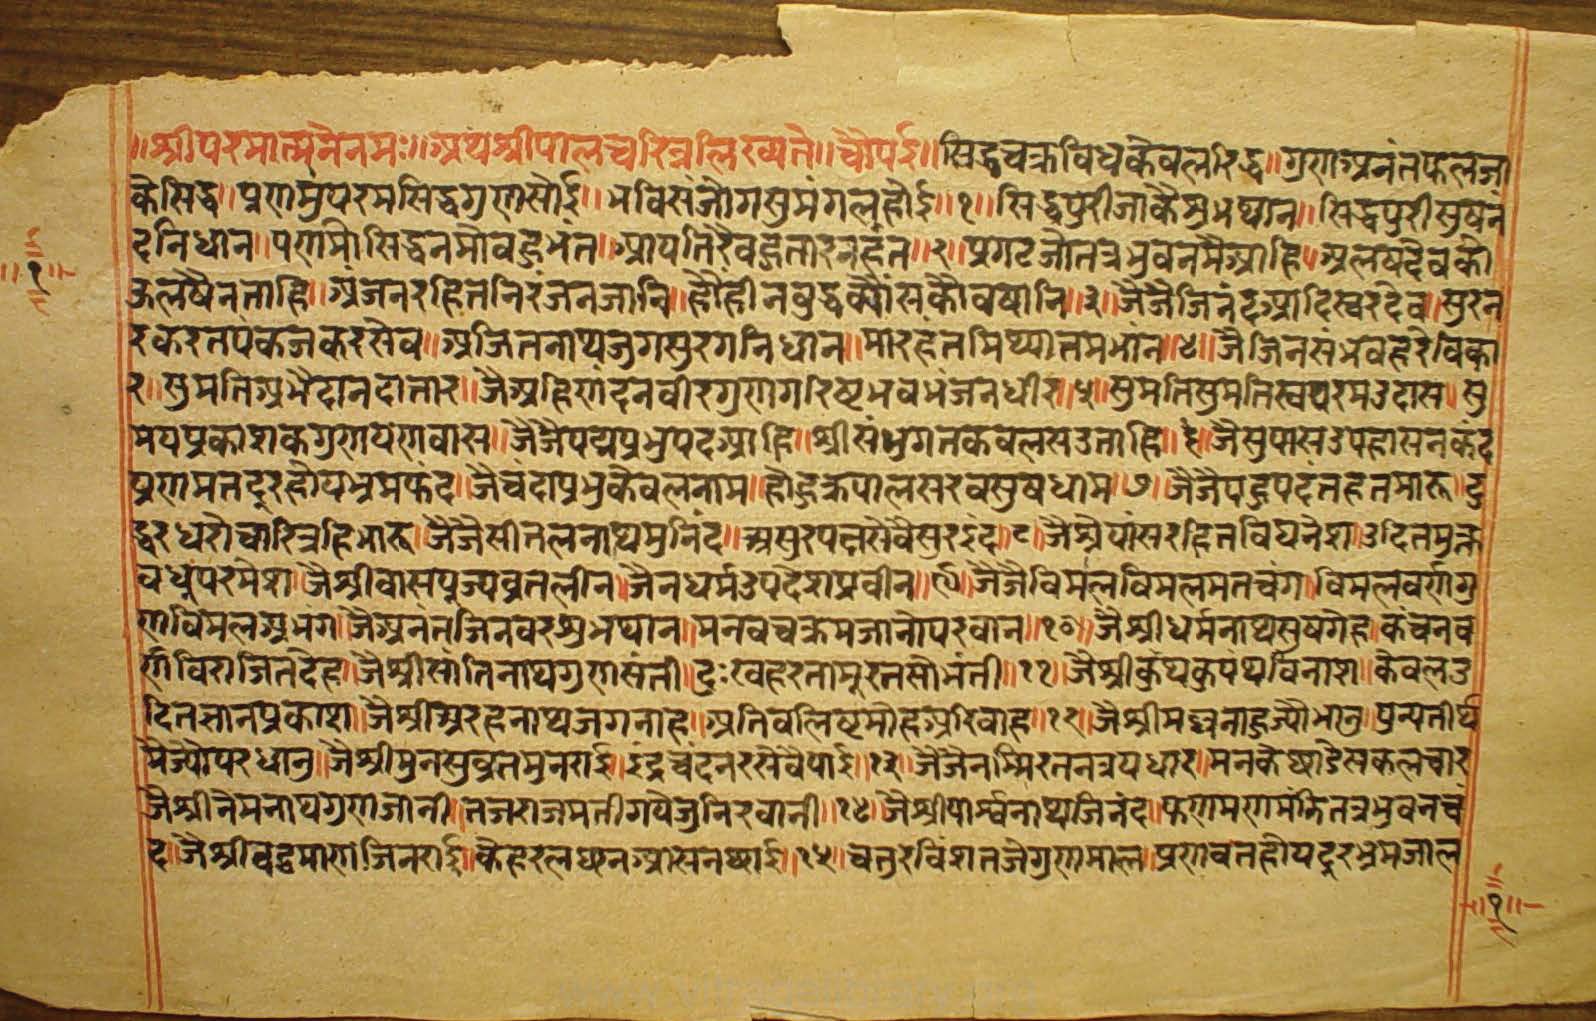 ॥श्रीपरमात्मनैनमः॥अथश्रीपालचरित्रलिख्यतै॥चौपई॥सिद्धचक्रविधकेवलरिद्ध॥गुणअनंतफलजा
कैसिद्ध॥प्रणमुंपरमसिद्धगुणसोई॥भविसंजोगसुमंगलहोई॥१॥सिद्धपुरीजाकैसुभथान॥सिद्धपुरीसुषनं
दनिधान॥पणमौसिद्धनमौवहुभंत॥आपतिरैवहुतारनहंत॥२॥प्रगटजौतत्रभुवनमैआहि॥अलषदेवकौ
ऊलषैनताहि॥अंजनरहितनिरंजनजानि॥हौंहीनबुद्धक्यौंसकौवषानि॥३॥जैजैजिनंदआदिस्वरदेव॥सुरन
रकरतपंकजकरसेव॥अजितनाथजुगसुरगनिधान॥मारहंतमिथ्यातमभांन॥४॥जैजिनसंभवहरैविका
र॥सुमतिअभैदानदातार॥जैअहिणंदनवीरगुणगरिष्टभवभंजनधीर॥५॥सुमतिसुमतिस्वपरमउदास॥सु
मेपप्रकाशकगुणयेणवास॥जैजैपद्मप्रभुपदआहि॥श्रीसंभुगतकेवलसउताहि॥६॥जैसुपाससउपहासनकंद
प्रणमतदूरहौयभ्रमफंद॥जैचंदाप्रभुकैवलनाम॥हौहुक्रपालसरवसुषधाम॥७॥जैजैपहुपदंतहतमारू॥दु
द्धरधरौचारित्रहिभारू॥जैजैसीतलनाथमुनिंद॥असुरपतासैवैसुरइंद॥८॥जैश्रैयांसरहितविघनैश॥उदितमुक्त
वधुपरमेश॥जैश्रीवासपुज्यव्रतलीन॥जैनधर्मउपदेशप्रवीन॥९॥जैजैविमलविमलमतचंग॥विमलवर्णगु
णविमलअभंग॥जैअनंतजिनवरशुभथान॥मनवचक्रमजानोपरवान॥१०॥जैश्रीधर्मनाथसुषगेह॥कंचनव
र्णविराजितदेह॥जैश्रीसांतिनाथगुणसंती॥दुःखहरतामुरतसोभंती॥११॥जैश्रीकुंथकुपंथविनाश॥केवलउ
दितज्ञानप्रकाश॥जैश्रीअरहनाथजगनाह॥अतिवलिष्टमौहअरिवाह॥१२॥जैश्रीमल्लनाहुज्यौभानु॥प्रन्यतीर्थ
मैज्यौपरधानु॥जैश्रीमुनसुव्रतमुनराई॥इंद्रचंदनरसेवैपाई॥१३॥जैजैनम्मिरतनत्रयधार॥मनकेषाडैसकलचार
जैश्रीनैमनाथगुणजानी॥तजराजमतीगयेजुनिरवानी॥१४॥जैश्रीपार्श्वनाथजिनंद॥फणमणमंडितत्रभुवनचं
द॥जैश्रीवद्धमाणजिनराई॥केहरलक्षनआसनथाई॥१५॥चतुरविंशतजैगुणमाल॥प्रणवतहौयदुरभ्रमजाल
॥१॥
॥१॥